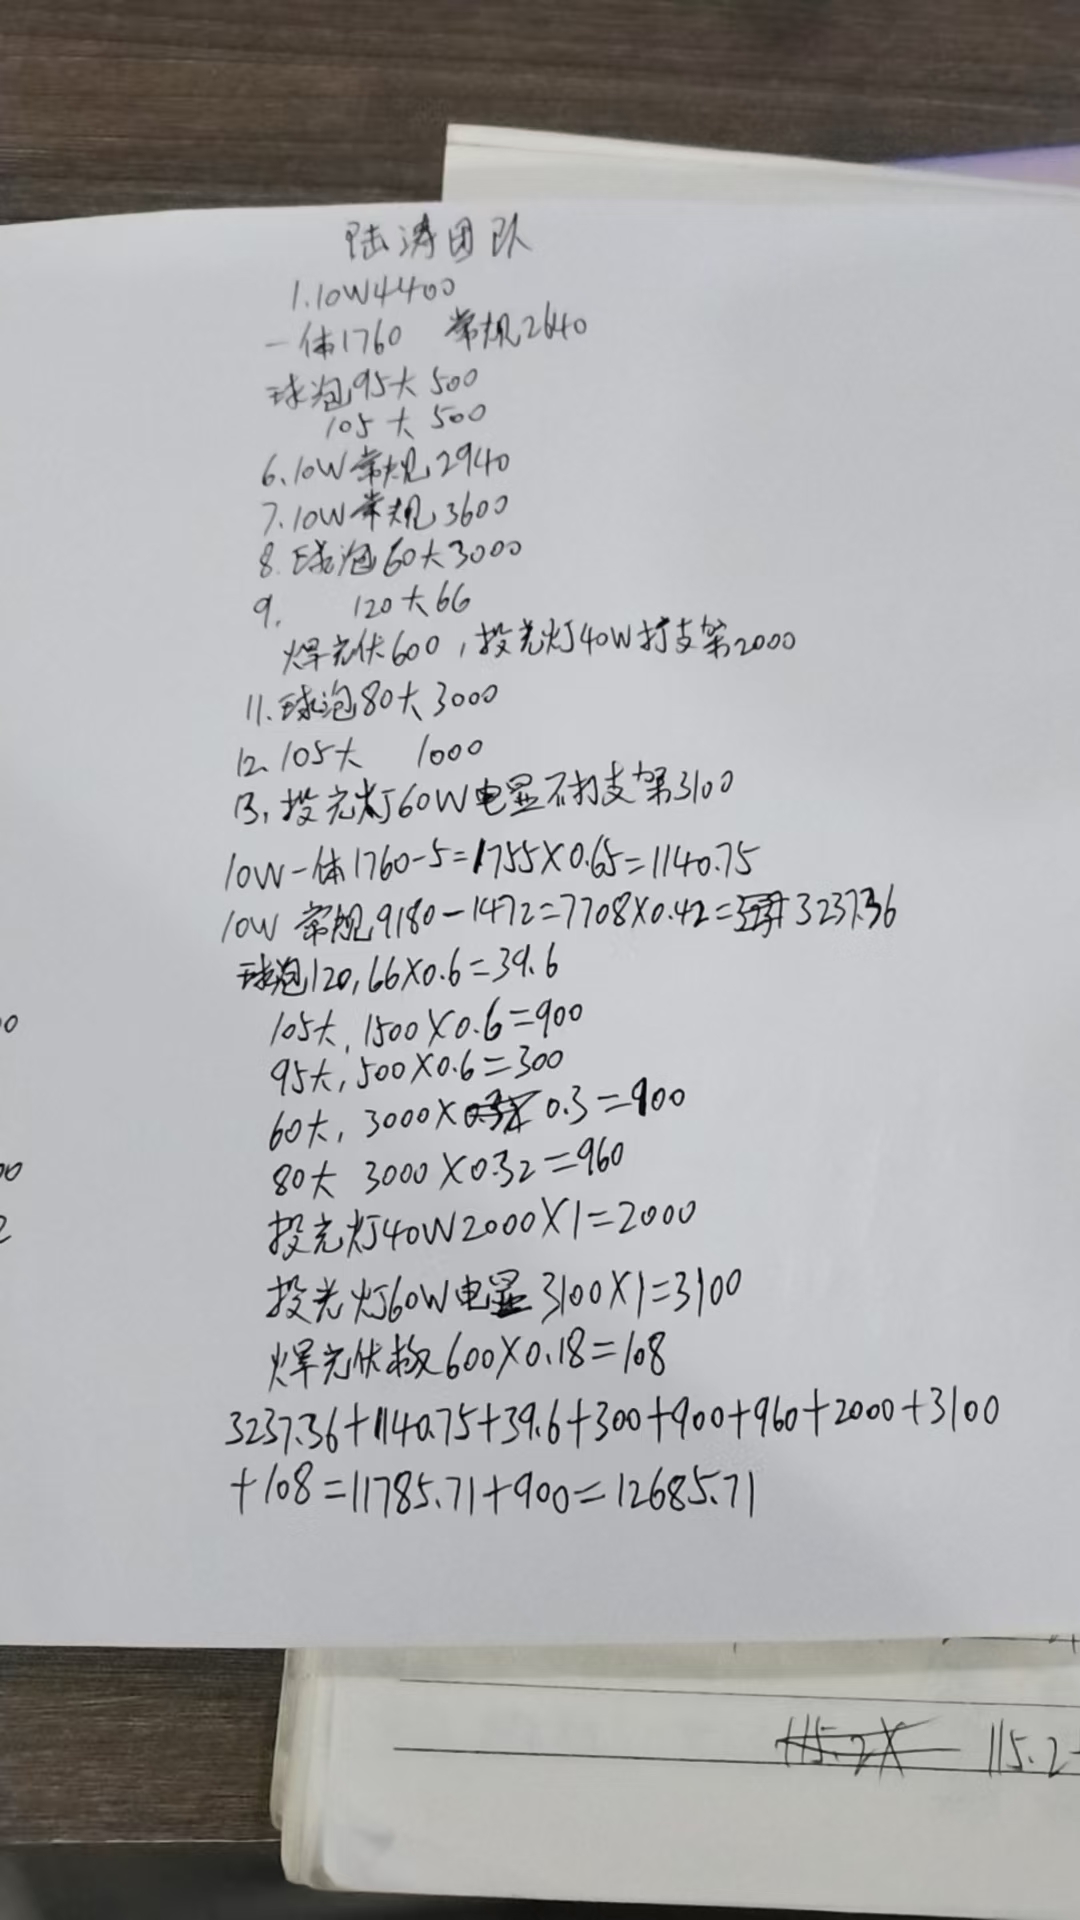 陆涛团队
1.10W4400
一体1760 常规2640
球泡95大500
105大500
6.10W常规2940
7.10W常规3600
8.球泡60大3000
9. 120大66
焊光伏600,投光灯40W打支架2000
11.球泡80大3000
12.105大 1000
13.投光灯60W电显不打支架3100
10W一体1760-5=1755X0.65=1140.75
10W 常规9180-1472=7708X0.42=3237.36
球泡120,66X0.6=39.6
105大,1500X0.6=900
95大,500X0.6=300
60大,3000X0.3=900
80大 3000X0.32=960
投光灯40W2000X1=2000
投光灯60W电显3100X1=3100
焊光伏板600X0.18=108
3237.36+1140.75+39.6+300+900+960+2000+3100
+108=11785.71+900=12685.71
00
00
2
115.2X 115.2